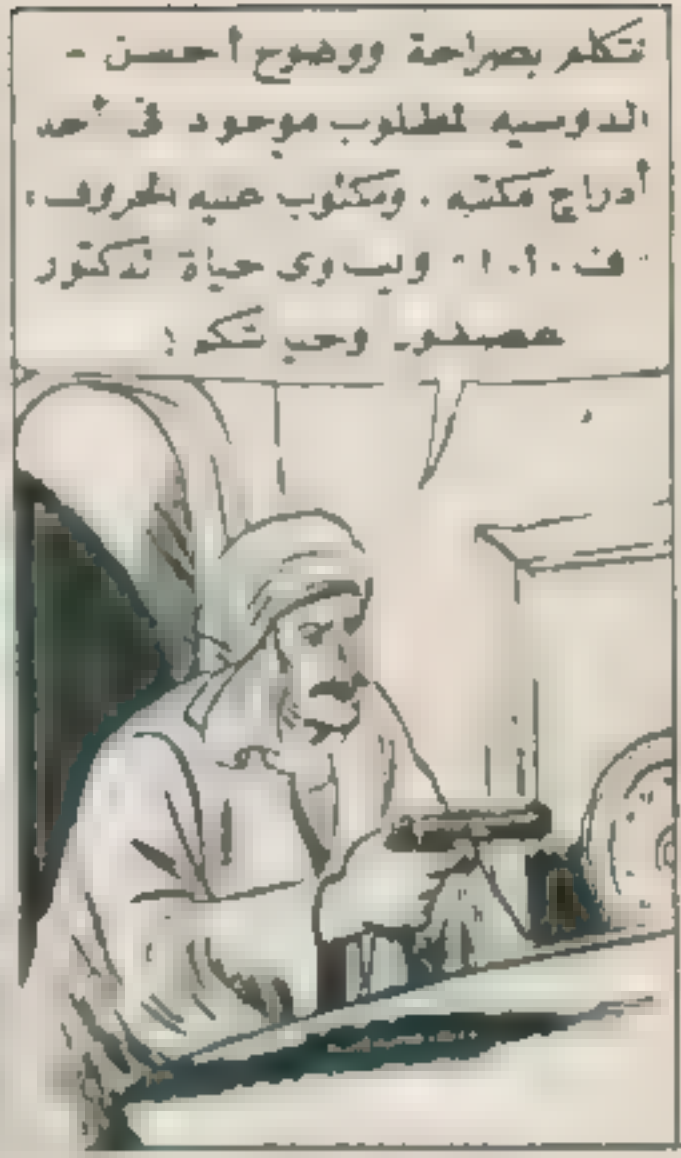 نتكلم بصراحة ووضوح أحسن -
الدوسيه المطلوب موجود فى أحد
أدراج مكتبه . ومكتوب عليه بالحروف :
" ف . أ . ا " وليساوى حياة الدكتور
عصفور